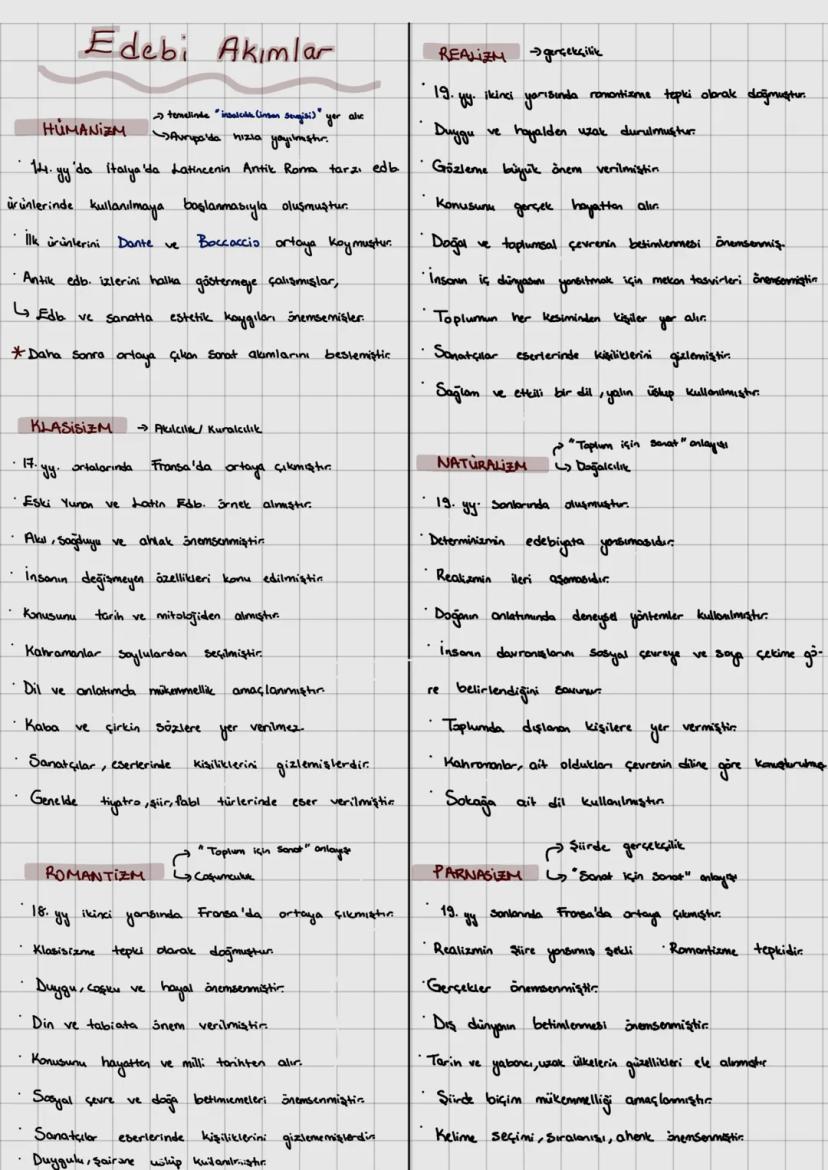 Edebi Akımlar
HÜMANİZM
→ temelinde "insalcılık (insan sevgisi)" yer alır
↳ Avrupa'da hızla yayılmıştır.
· 14. yy'da İtalya'da Latincenin Antik Roma tarzı edb.
ürünlerinde kullanılmaya başlanmasıyla oluşmuştur.
· İlk ürünlerini Dante ve Boccaccio ortaya koymuştur.
· Antik edb. izlerini halka göstermeye çalışmışlar,
↳ Edb. ve sanatta estetik kaygıları önemsemişler.
* Daha sonra ortaya çıkan sanat akımlarını beslemiştir.
KLASİSİZM → Akılcılık/ Kuralcılık
· 17. yy. ortalarında Fransa'da ortaya çıkmıştır.
· Eski Yunan ve Latin Edb. örnek almıştır.
· Akıl, sağduyu ve ahlak önemsenmiştir.
· İnsanın değişmeyen özellikleri konu edilmiştir.
· Konusunu tarih ve mitolojiden almıştır.
· Kahramanlar soylulardan seçilmiştir.
· Dil ve anlatımda mükemmellik amaçlanmıştır.
· Kaba ve çirkin sözlere yer verilmez.
· Sanatçılar, eserlerinde kişiliklerini gizlemişlerdir.
· Genelde tiyatro, şiir, fabl türlerinde eser verilmiştir.
ROMANTİZM
→ "Toplum için sanat" anlayışı
↳ Coşumculuk
· 18. yy ikinci yarısında Fransa'da ortaya çıkmıştır.
· Klasisizme tepki olarak doğmuştur.
· Duygu, coşku ve hayal önemsenmiştir.
· Din ve tabiata önem verilmiştir.
· Konusunu hayatten ve milli tarihten alır.
· Sosyal çevre ve doğa betimlemeleri önemsenmiştir.
· Sanatçılar eserlerinde kişiliklerini gizlememişlerdir.
· Duygulu, şairane üslup kullanılmıştır.
REALİZM → gerçekçilik
· 19. yy. ikinci yarısında romantizme tepki olarak doğmuştur.
· Duygu ve hayalden uzak durulmuştur.
· Gözleme büyük önem verilmiştir.
· Konusunu gerçek hayattan alır.
· Doğal ve toplumsal çevrenin betimlenmesi önemsenmiş.
· İnsanın iç dünyasını yansıtmak için mekan tasvirleri önemsenmiştir
· Toplumun her kesiminden kişiler yer alır.
· Sanatçılar eserlerinde kişiliklerini gizlemiştir.
· Sağlam ve etkili bir dil, yalın üslup kullanılmıştır.
NATÜRALİZM
→ "Toplum için sanat" anlayışı
↳ Doğalcılık
· 19. yy. sonlarında oluşmuştur.
· Determinizmin edebiyata yansımasıdır.
· Realizmin ileri aşamasıdır.
· Doğanın anlatımında deneysel yöntemler kullanılmıştır.
· İnsanın davranışlarını sosyal çevreye ve soya çekime gö-
re belirlendiğini savunur.
· Toplumda dışlanan kişilere yer vermiştir.
· Kahramanlar, ait oldukları çevrenin diline göre konuşturulmuş
· Sokağa ait dil kullanılmıştır.
PARNASİZM
→ Şiirde gerçekçilik
↳ "Sanat için sanat" anlayışı
· 19. yy sonlarında Fransa'da ortaya çıkmıştır.
· Realizmin şiire yansımış şekli · Romantizme tepkidir.
· Gerçekler önemsenmiştir.
· Dış dünyanın betimlenmesi önemsenmiştir.
· Tarih ve yabancı, uzak ülkelerin güzellikleri ele alınmıştır
· Şiirde biçim mükemmelliği amaçlanmıştır.
· Kelime seçimi, sıralanışı, ahenk önemsenmiştir.